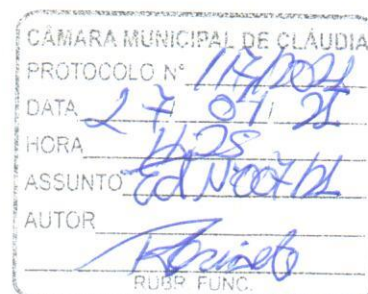 CÂMARA MUNICIPAL DE CLÁUDIA
PROTOCOLO Nº 117/2021
DATA 27/ 01/ 21
HORA
ASSUNTO Ed Nº007/21
AUTOR
RUBR FUNC.